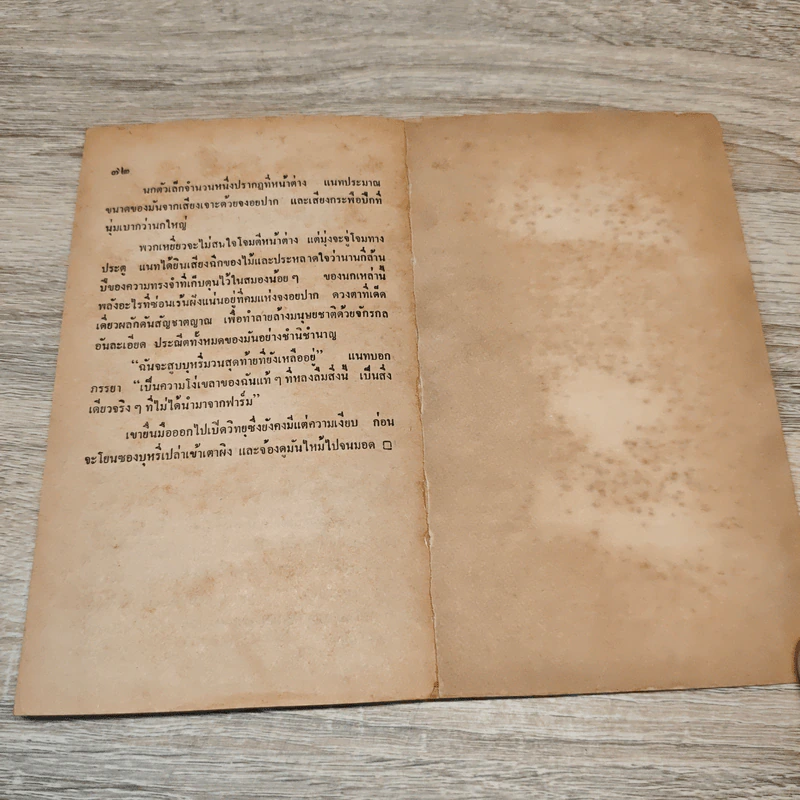 ๗๒
นกตัวเล็กจำนวนหนึ่งปรากฏที่หน้าต่าง แนทประมาณ
ขนาดของมันจากเสียงเจาะด้วยจงอยปาก และเสียงกระพือปีกที่
นุ่มเบากว่านกใหญ่
พวกเหยี่ยวจะไม่สนใจโจมตีหน้าต่าง แต่มุ่งจะจู่โจมทาง
ประตู แนทได้ยินเสียงฉีกของไม้และประหลาดใจว่านานกี่ล้าน
ปีของความทรงจำที่เก็บตุนไว้ในสมองน้อย ๆ ของนกเหล่านี้
พลังอะไรที่ซ่อนเร้นฝังแน่นอยู่ที่คมแห่งจงอยปาก ดวงตาที่เด็ด
เดี่ยวผลักดันสัญชาตญาณ เพื่อทำลายล้างมนุษยชาติด้วยจักรกล
อันละเอียด ประณีตทั้งหมดของมันอย่างชำนิชำนาญ
“ฉันจะสูบบุหรี่มวนสุดท้ายที่ยังเหลืออยู่” แนทบอก
ภรรยา “เป็นความโง่เขลาของฉันแท้ ๆ ที่หลงลืมสิ่งนี้ เป็นสิ่ง
เดียวจริง ๆ ที่ไม่ได้นำมาจากฟาร์ม”
เขายื่นมือออกไปเปิดวิทยุซึ่งยังคงมีแต่ความเงียบ ก่อน
จะโยนซองบุหรี่เปล่าเข้าเตาผิง และจ้องดูมันไหม้ไปจนมอด □